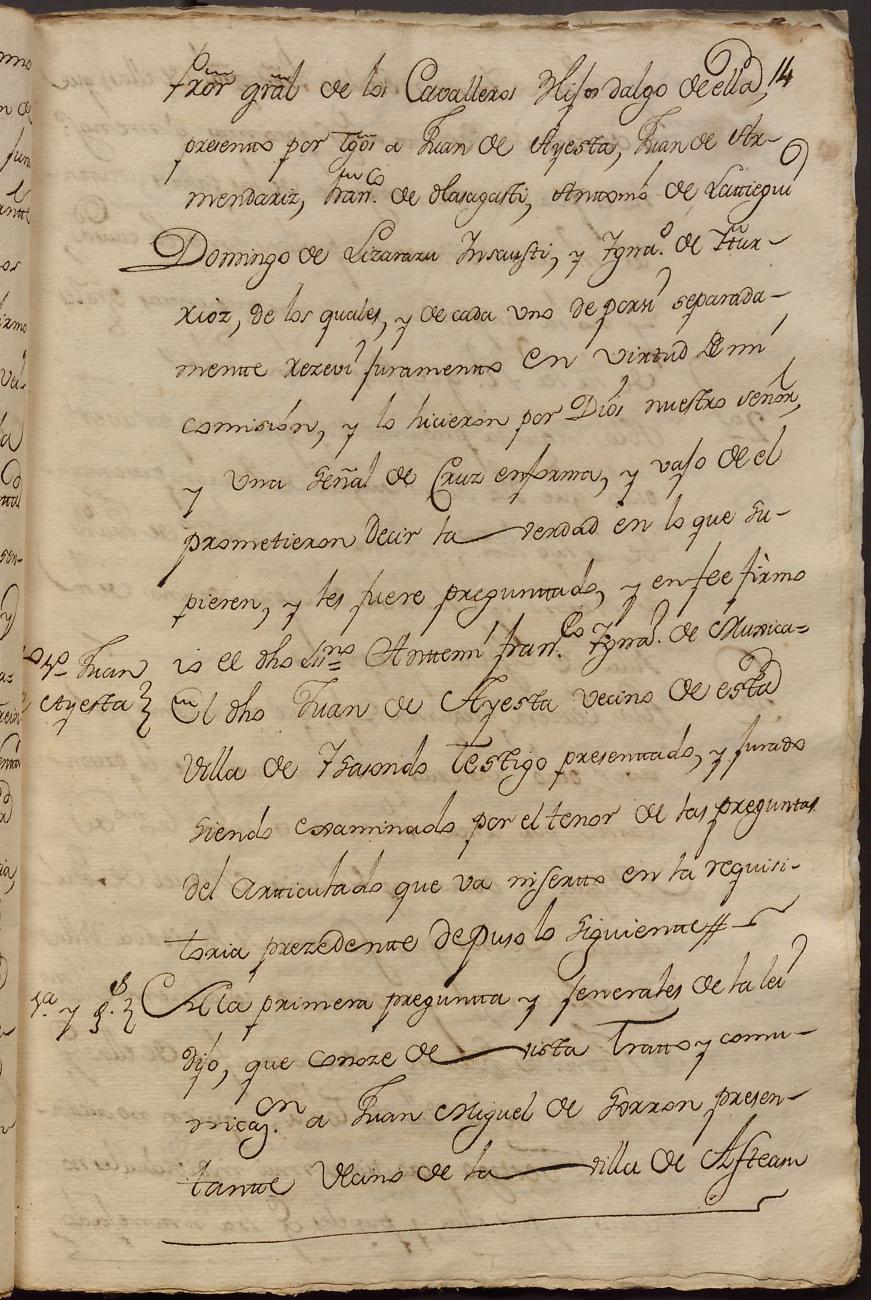 14
Prõr grãl de los Cavalleros Hijosdalgo de ella,
presentto por Tgõs a Juan de Ayesta, Juan de Ar-
mendariz, Fran.co de Olasagasti, Anttonio de Lattiegui
Domingo de Lizararu Insausti, y Ygna.o de Ytur-
rioz, de los quales, y de cada uno de por si separada-
mentte rezevi juramentto en virtud de mi
comisión, y lo hicieron por Dios nuestro señor,
y una señal de Cruz en forma, y vajo de el
prometieron decir la verdad en lo que su-
pieren, y les fuere preguntado, y en fee firmo
io el dho Ssno Anttemi Fran.co Ygna.o de Munica=
tt.o Juan
Ayesta
El dho Juan de Ayesta vecino de esta
villa de Ysasondo Testigo presenttado, y jurado
siendo examinado por el tenor de las preguntas
del artticulado que va insertto en la requisi-
toria prezedentte depuso lo siguientte #
1.a y g.s
A la primera pregunta y generales de la lei
dijo, que conoze de vista Tratto y comu-
nicaz.on a Juan Miguel de Sorron presen-
tantte vecino de la villa de Asteasu